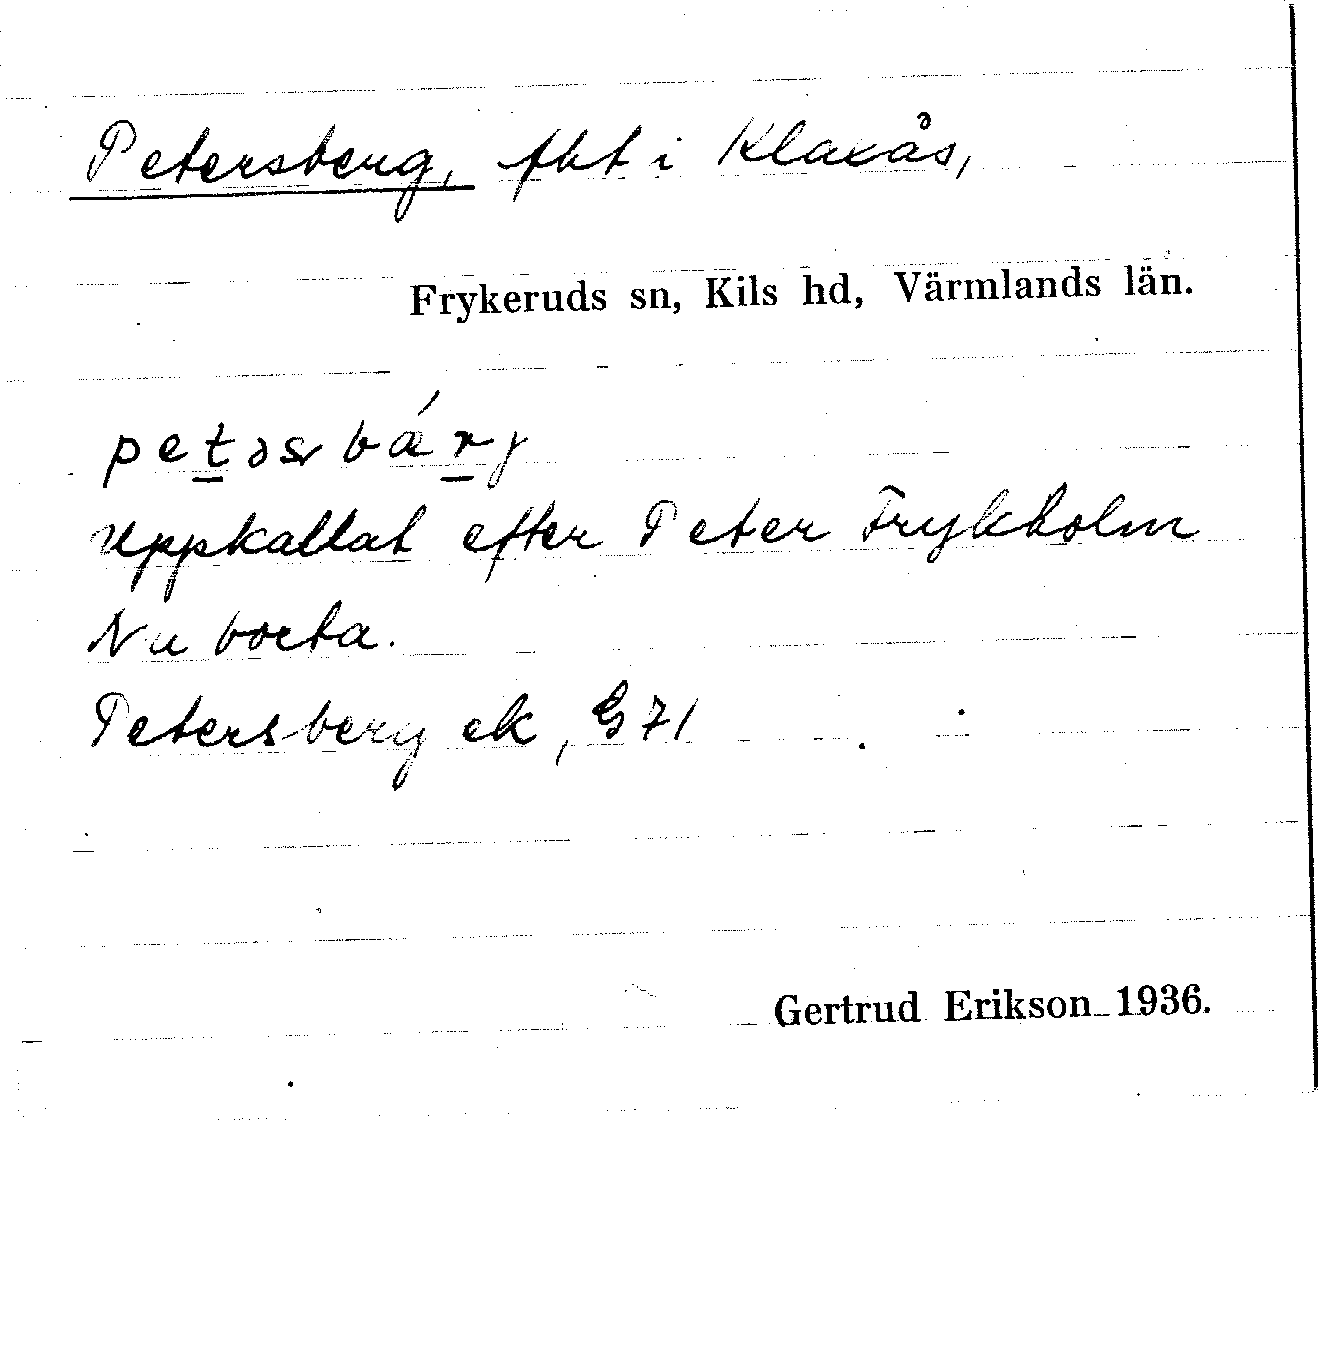 Petersberg, fht i Klaxås,
Frykeruds sn, Kils hd, Värmlands län.
petəsbærj
Uppkallat efter Peter Frykholm
Nu borta.
Petersberg ek, G71
Gertrud Erikson 1936.